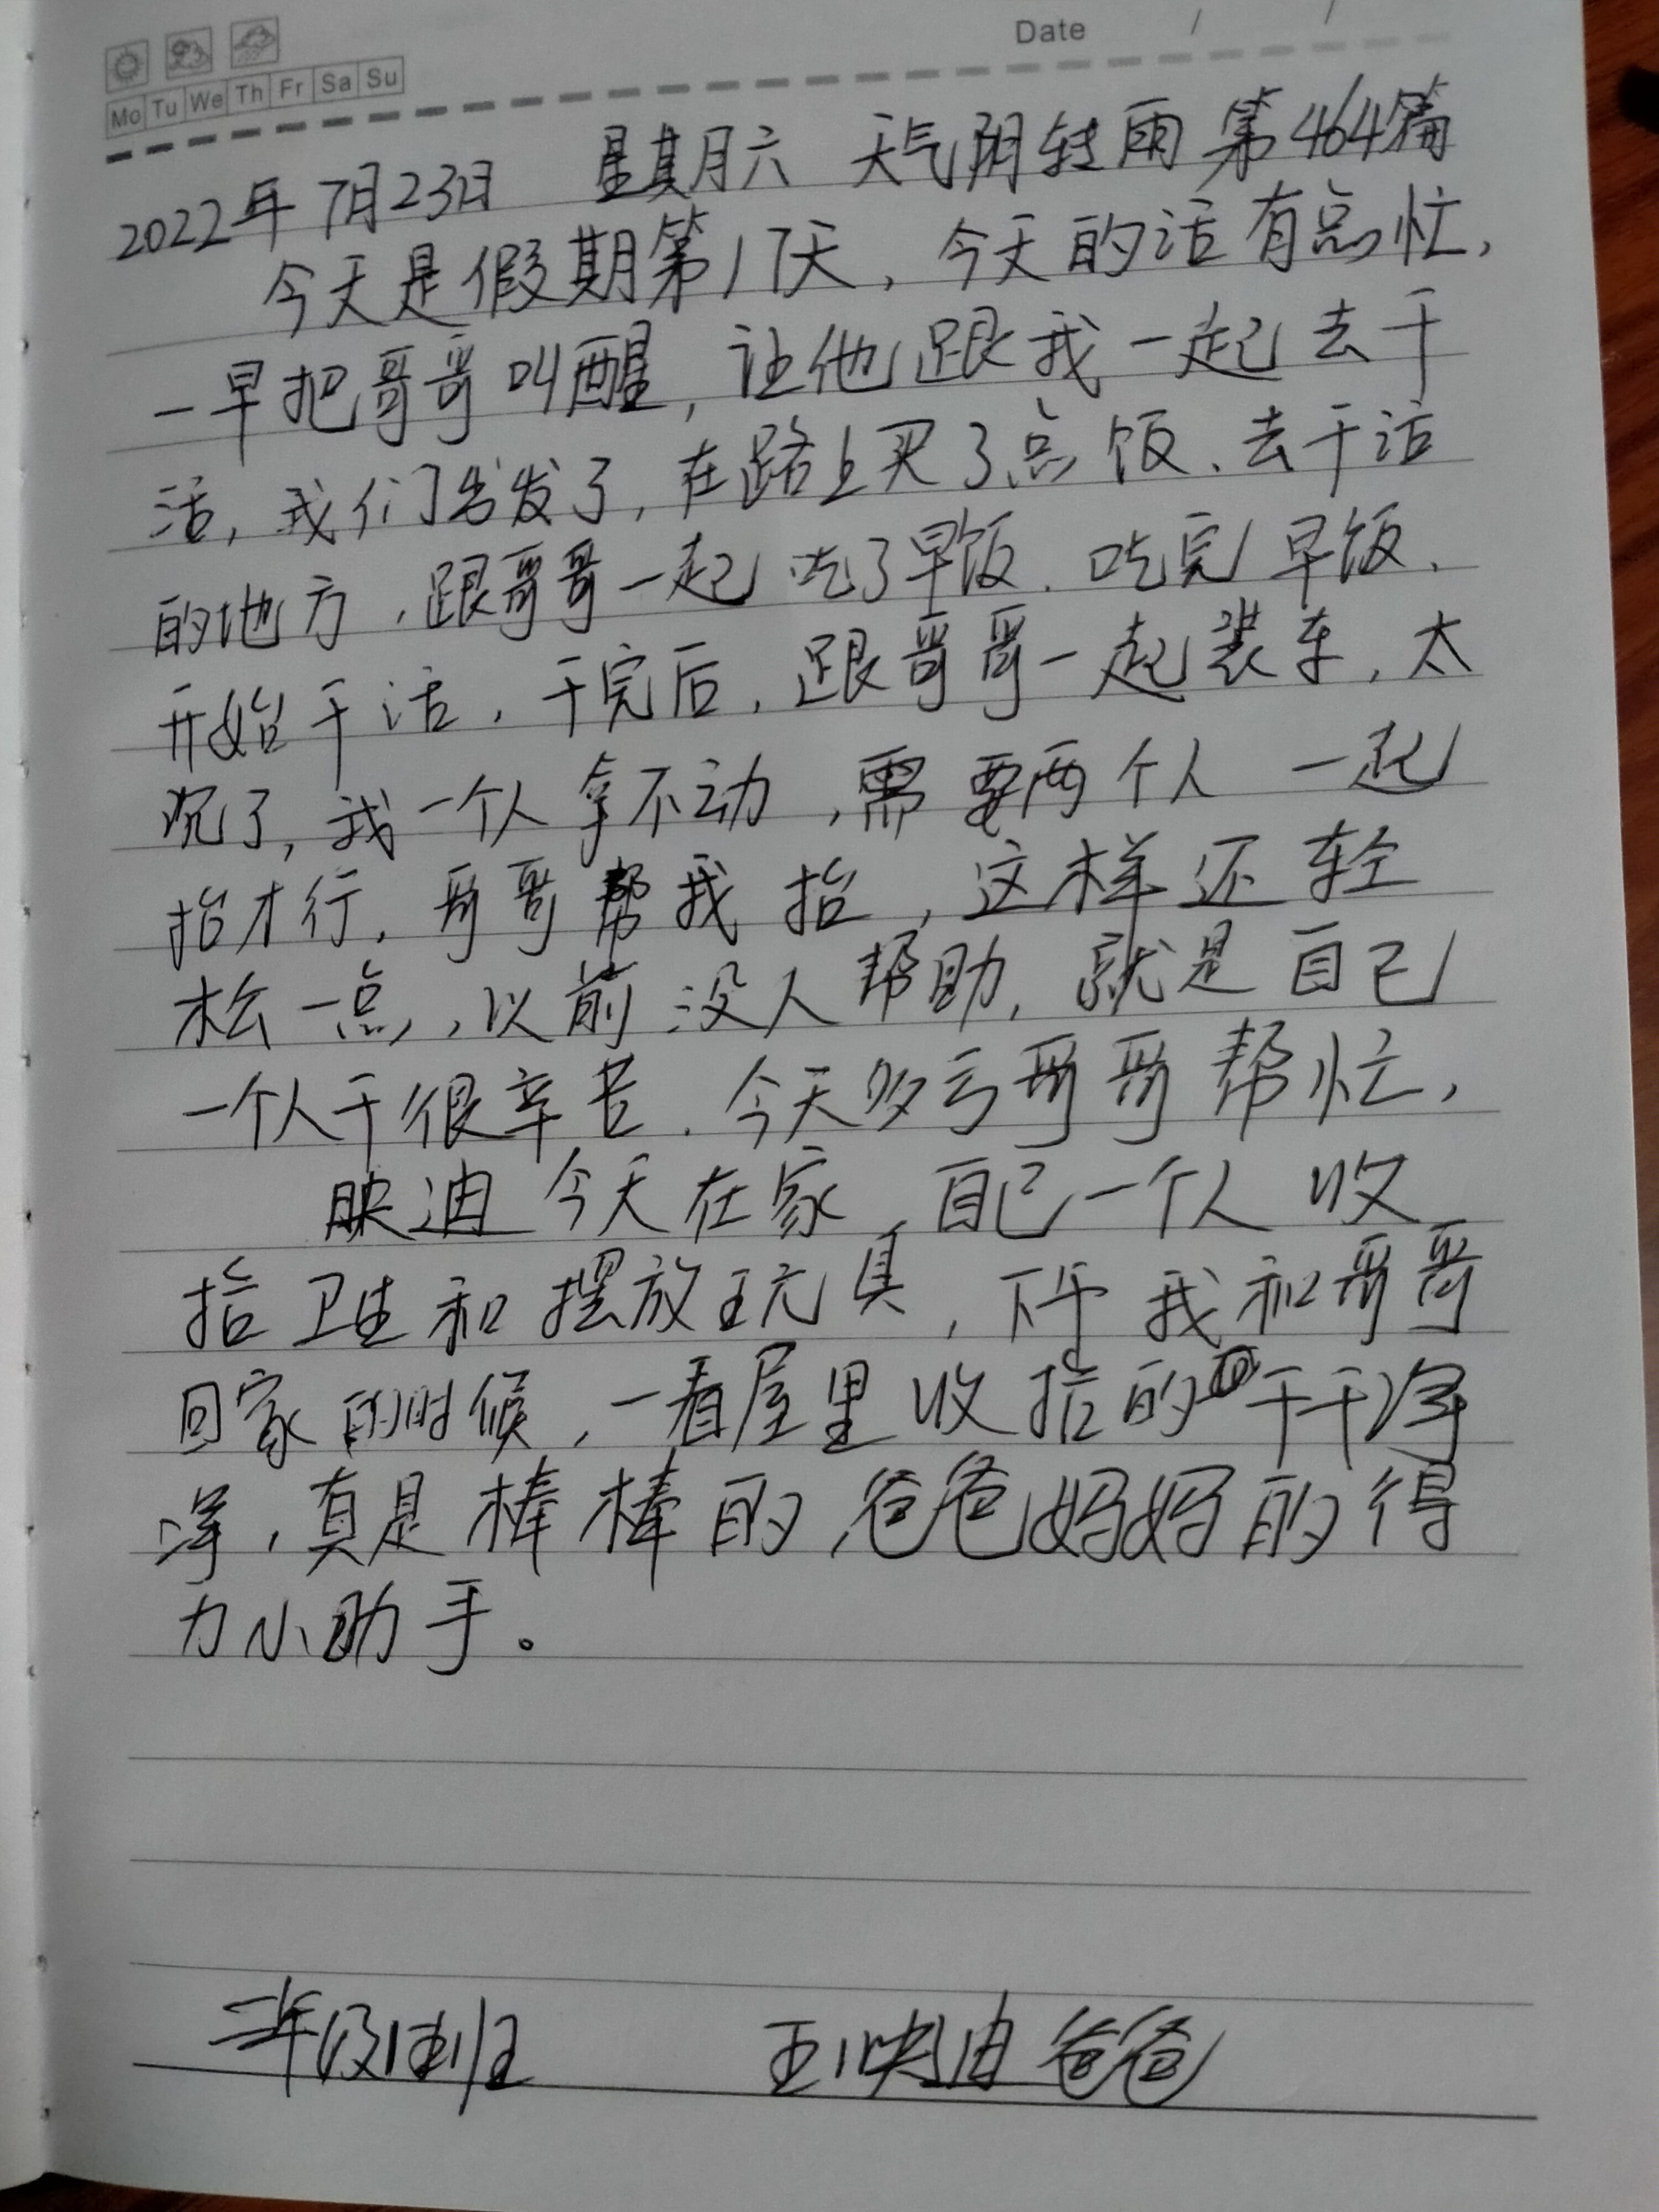 Date / /
Mo Tu We Th Fr Sa Su
2022年7月23日 星期六 天气阴转雨 第464篇
今天是假期第17天，今天的活有点忙，
一早把哥哥叫醒，让他跟我一起去干
活，我们出发了，在路上买了点饭、去干活
的地方，跟哥哥一起吃了早饭．吃完早饭．
开始干活，干完后，跟哥哥一起装车，太
沉了，我一个人拿不动，需要两个人一起
抬才行，哥哥帮我抬，这样还轻
松一点，以前没人帮助，就是自己
一个人干很辛苦．今天多亏哥哥帮忙，
映迪今天在家，自己一个人收
拾卫生和摆放玩具，下午我和哥哥
回家的时候，一看屋里收拾的干干净
净，真是棒棒的，爸爸妈妈的得
力小助手。
二年级1班 王映迪爸爸